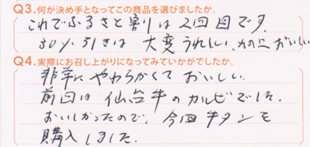 Q3.何が決め手となってこの商品を選びましたか。
これでふるさと割りは2回目です
30%引きは大変うれしい、
Q4.実際にお召し上がりになってみていかがでしたか。
非常にやわらかくておいしい。
前回は仙台牛のカルビでした。
おいしかったので、今回牛タンを
購入しました。